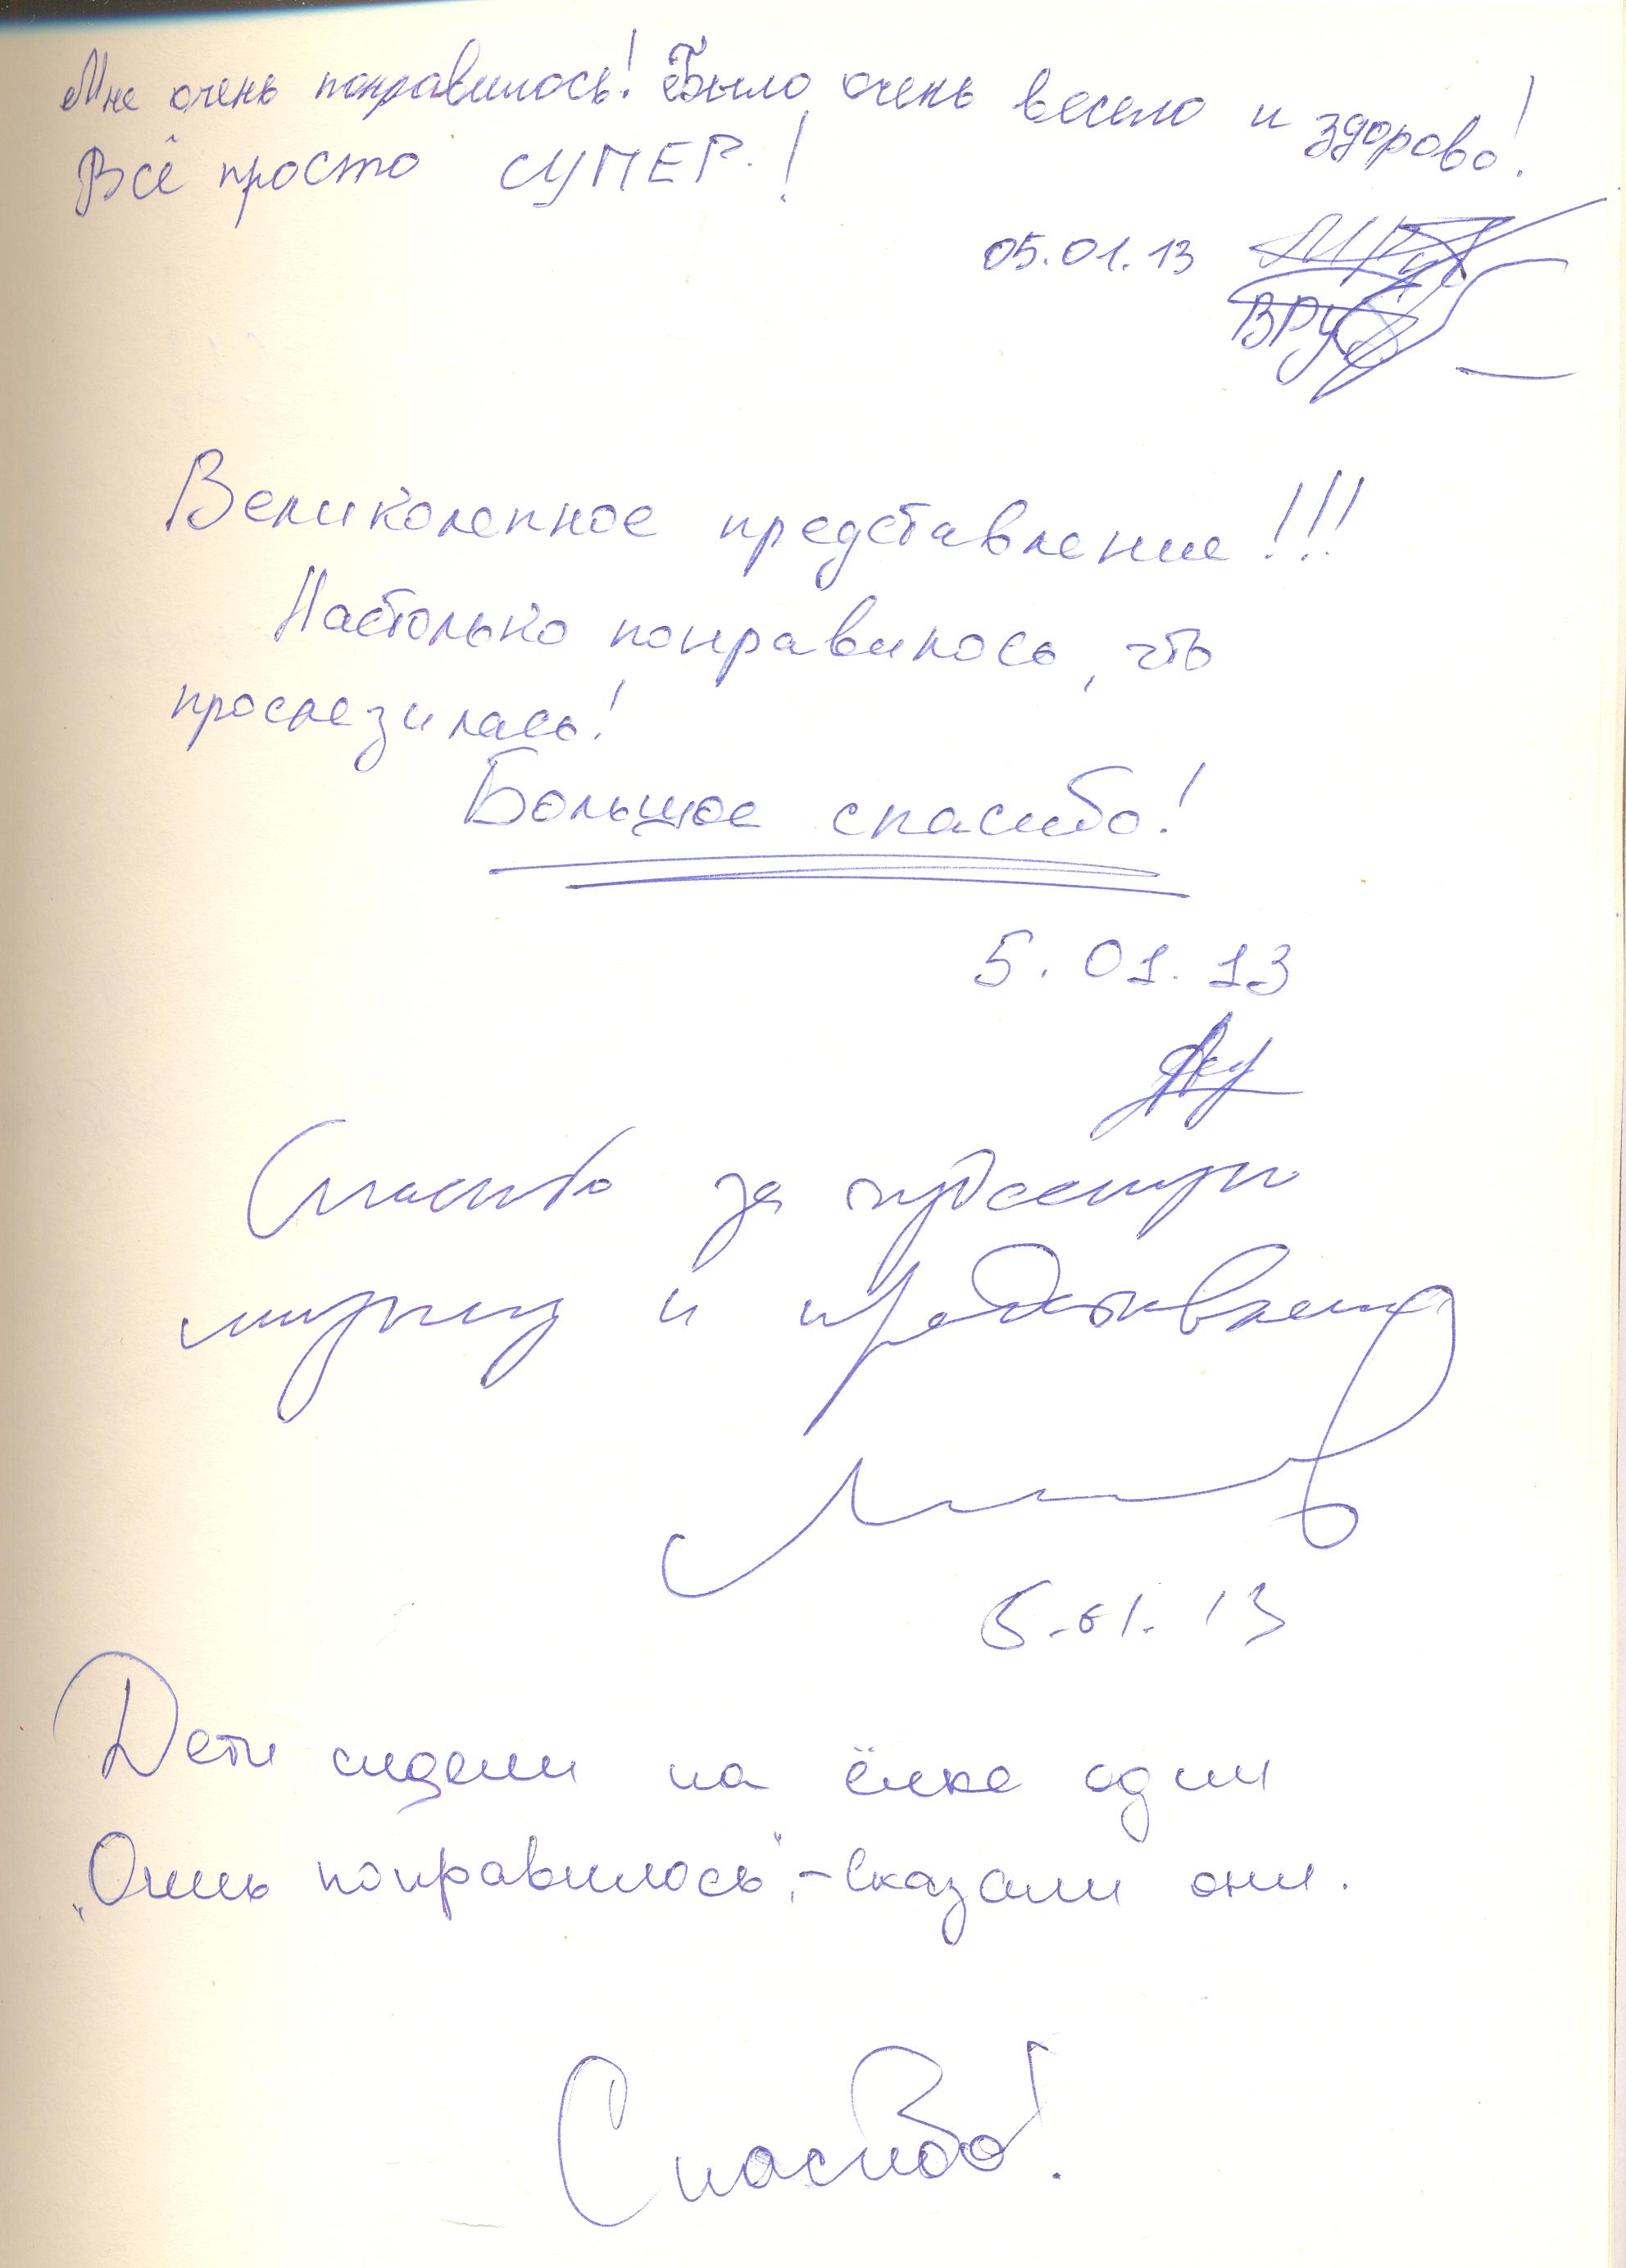 Мне очень понравилось! Было очень весело и здорово!
Всё просто СУПЕР!
05.01.13
Великолепное представление!!!
Настолько понравилось, что
прослезилась!
Большое спасибо!
5.01.13
Спасибо за
и представление
5.01.13
Дети сидели на ёлке одни
"Очень понравилось", - сказали они.
Спасибо!